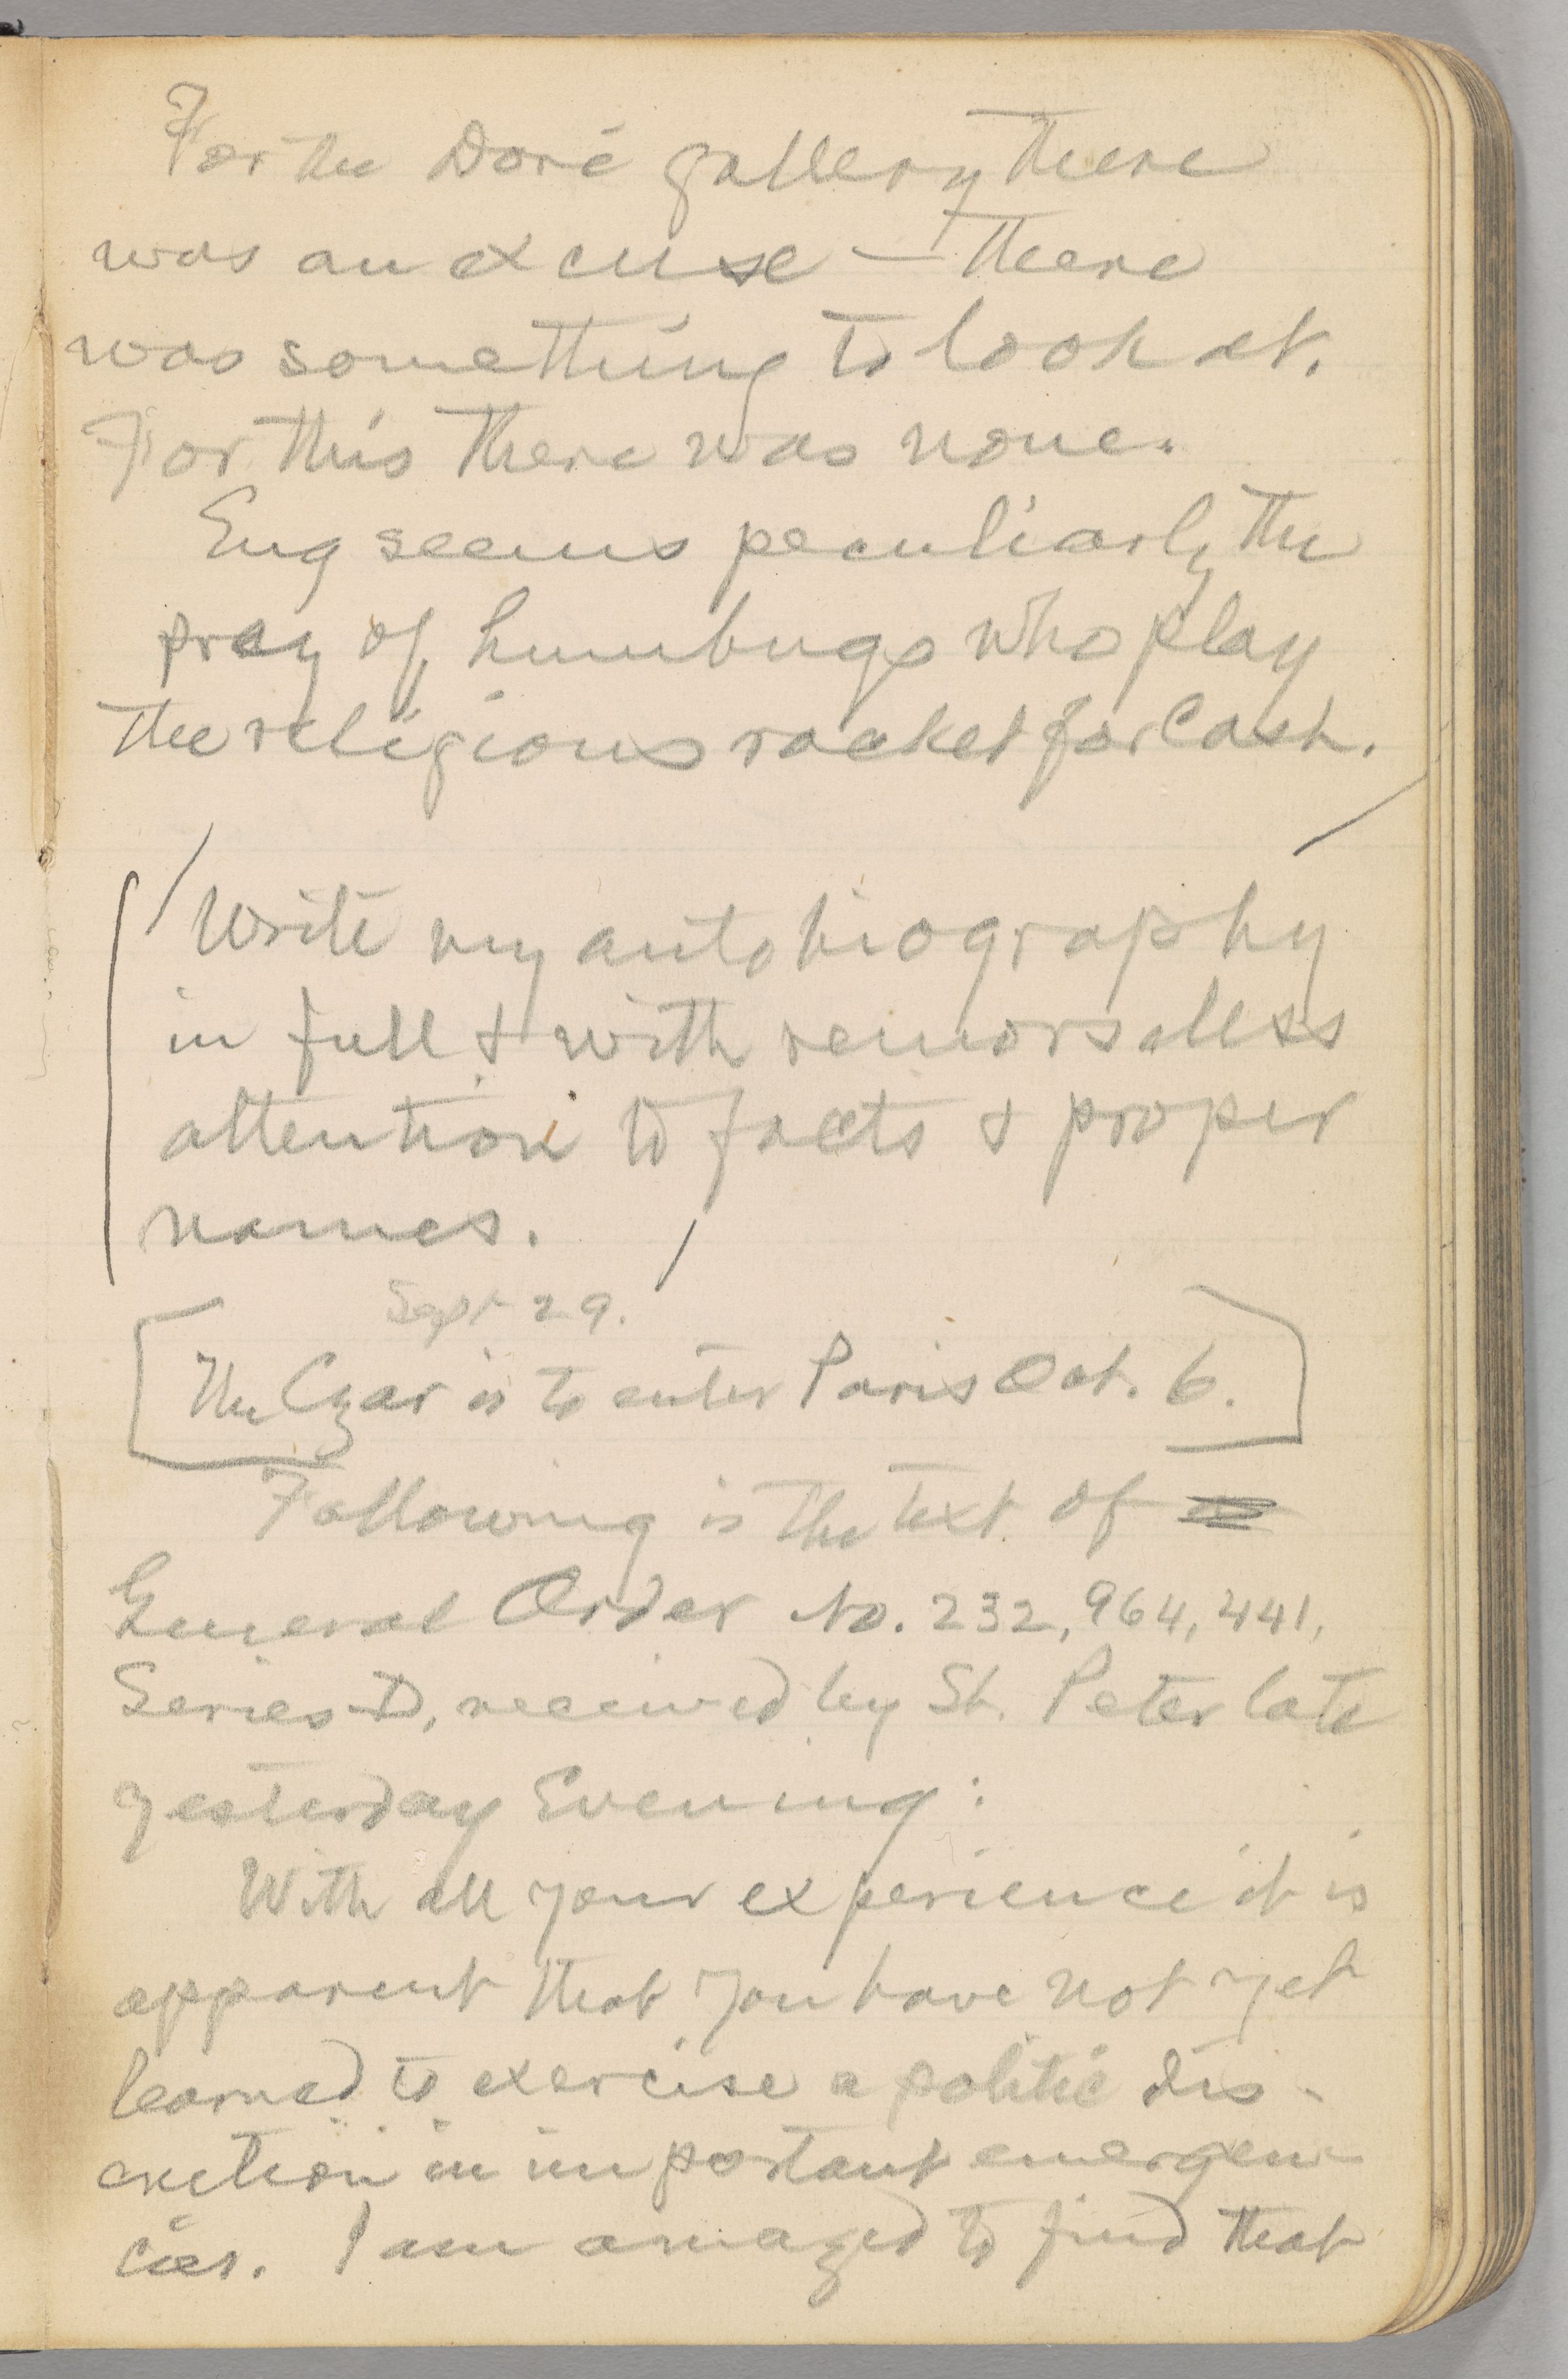 For the Doré gallery there
was an excuse — there
was something to look at.
For this there was none.
Eng seems peculiarly the
prey of humbugs who play
the religious racket for Cash.
Write my autobiography
in full & with remorseless
attention to facts & proper
names.
Sept 29.
[The Czar is to enter Paris Oct. 6.]
Following is the text of
General Order No. 232,964,441,
Series D, received by St. Peter late
yesterday Evening:
With all your experience it is
apparent that you have not yet
learned to exercise a politic dis-
cretion in important emergen-
cies. I am amazed to find that